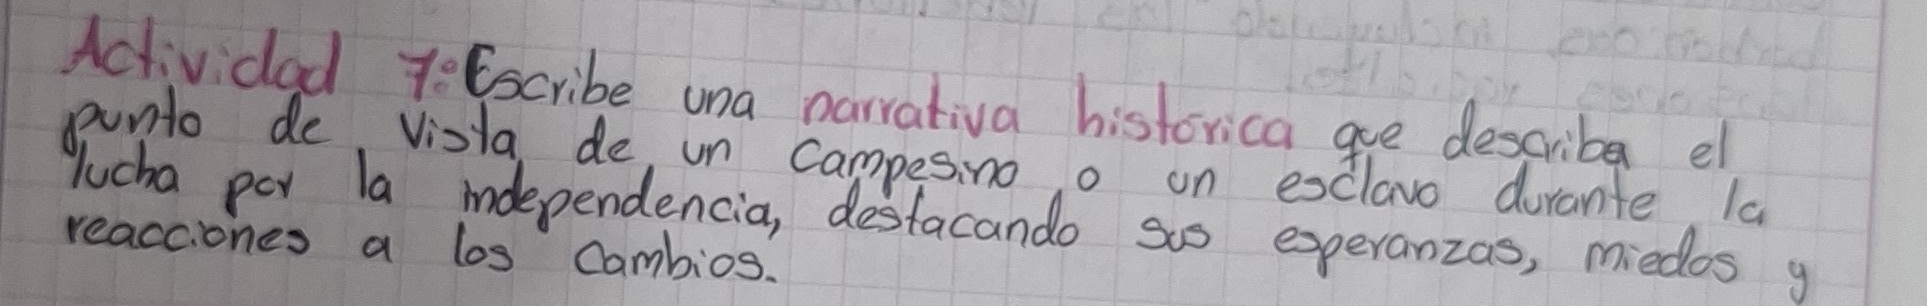 Actividad 7: Escribe una narrativa histórica que describa el
punto de vista de un campesino o un esclavo durante la
lucha por la independencia, destacando sus esperanzas, miedos y
reacciones a los cambios.